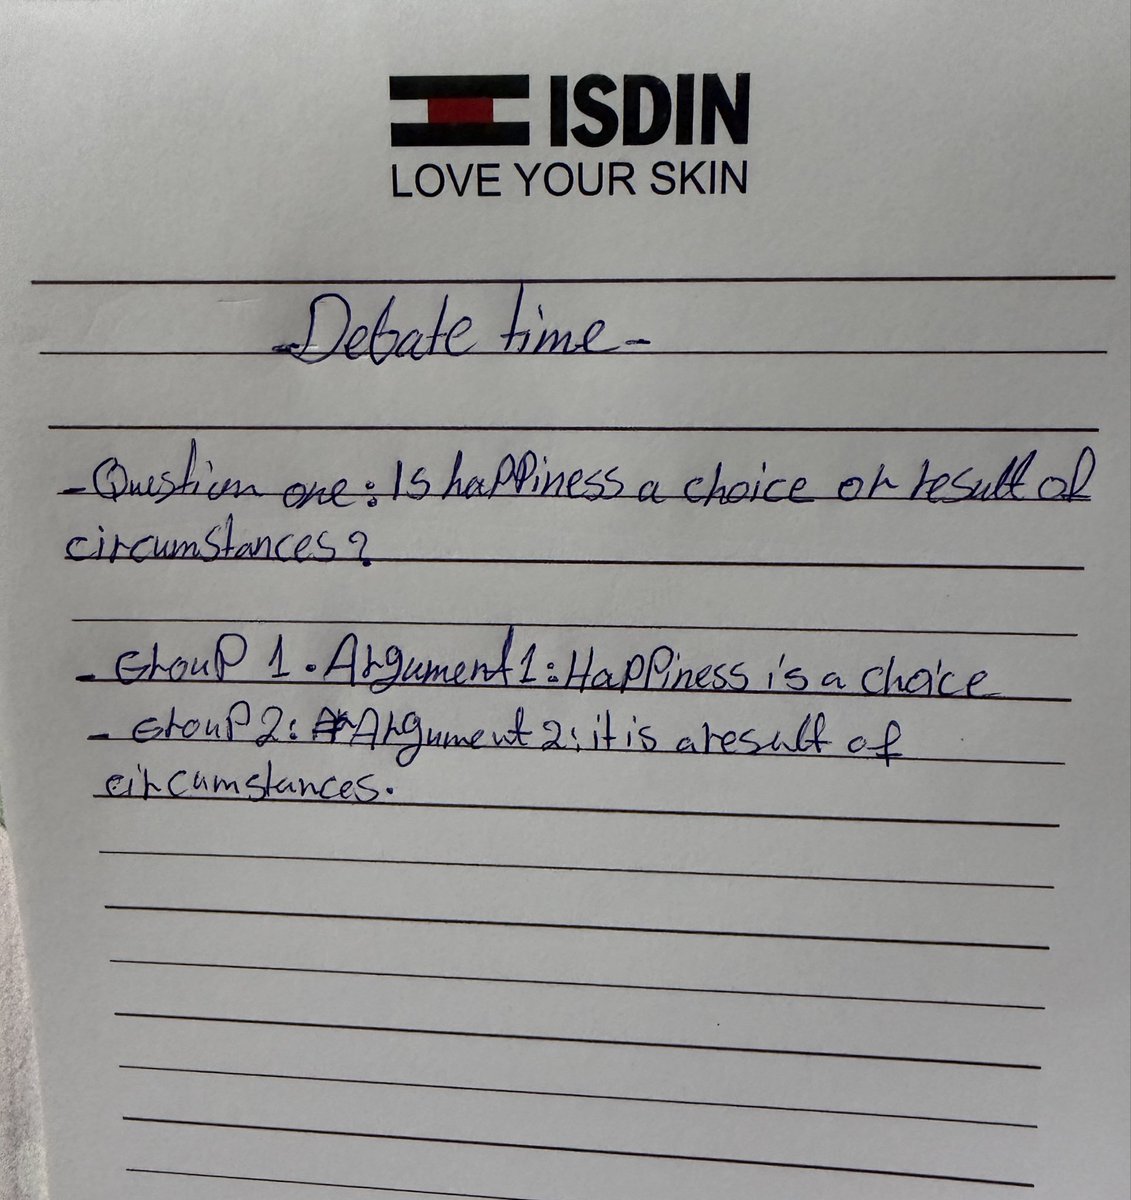 ISDIN
LOVE YOUR SKIN
- Debate time -
- Question one: Is happiness a choice or result of
circumstances?
- Group 1. Argument 1: Happiness is a choice
- Group 2: Argument 2: it is a result of
circumstances.